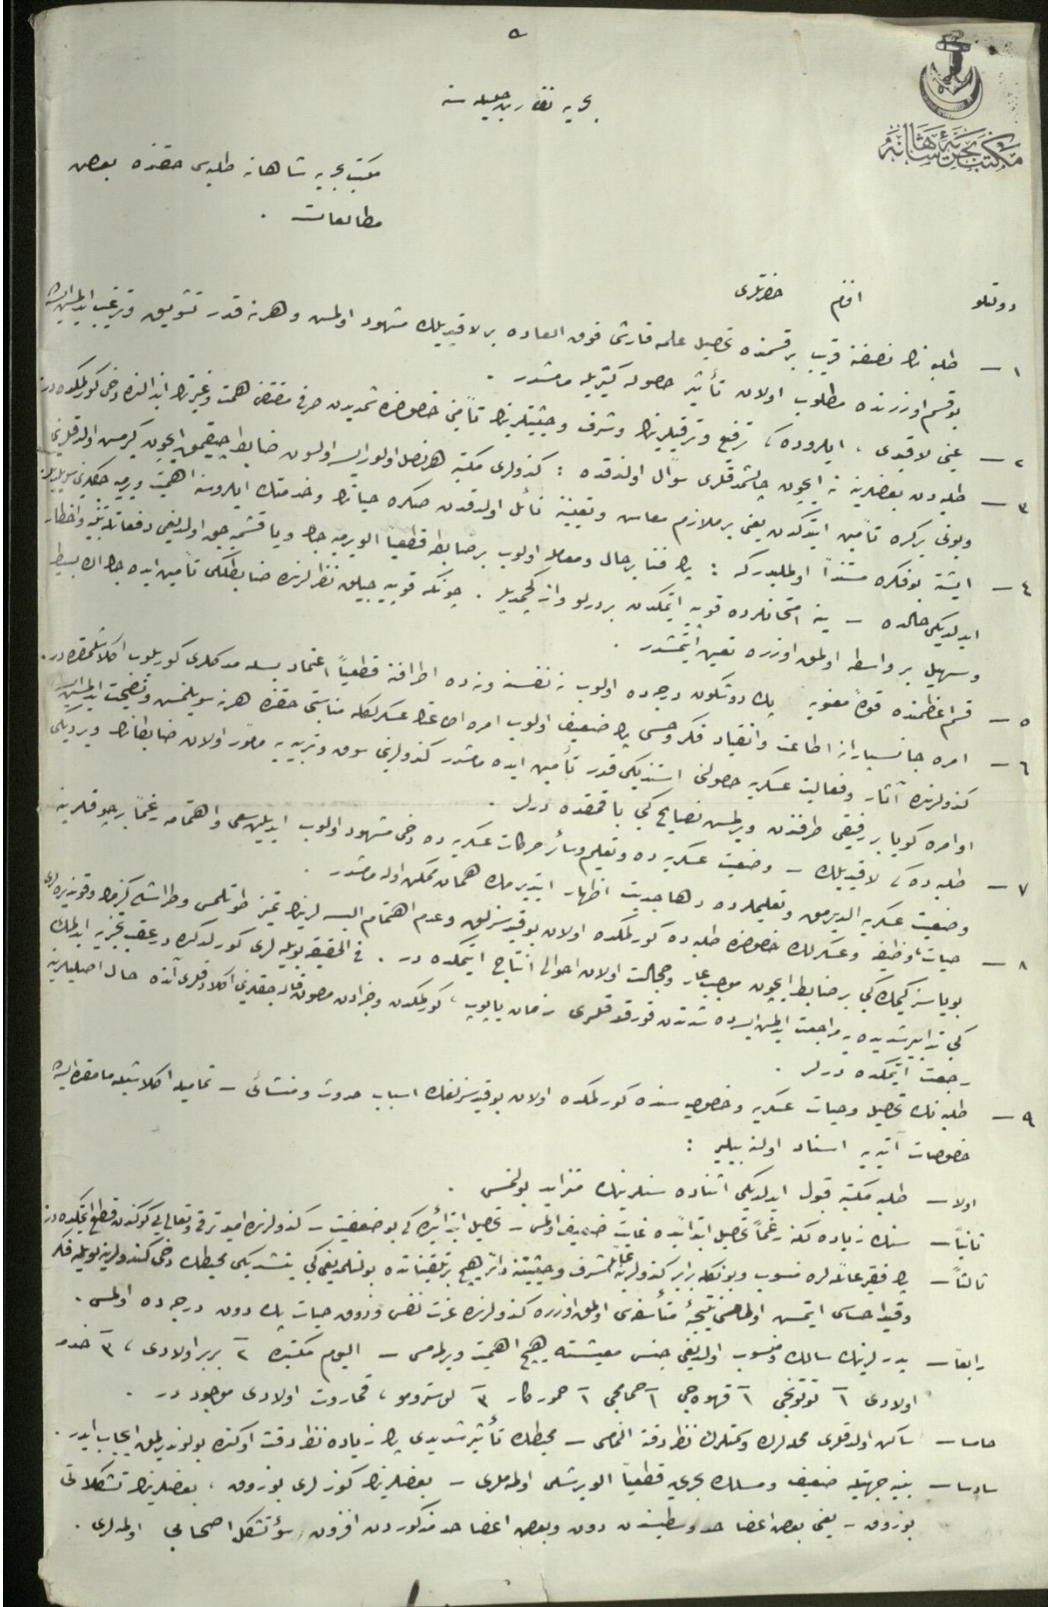 ٥
مكتب بحريۀ شاهانه
بحريه نظارت جليله سنه
مكتب بحريه شاهانه طلبه سى حقنده بعض
مطالعات .
دولتلو افندم حضرتلرى
١ — طلبه نك نصفنه قريب بر قسمنده تحصيل علمه قارشى فوق العاده بر لاقيديلك مشهود اولمش و هر نه قدر تشويق و ترغيب ايدلمش ايسه
بو قسم اوزرنده مطلوب اولان تأثير حصوله كتيريله مامشدر .
٢ — عينى لاقيدى ، ايلروده كى ترفيع و ترقيلرينك و شرف و حيثيتلرينك تأمينى خصوصنده
٣ — طلبه دن بعضلرينه نه ايچون چالشمدقلرى سؤال اولندقده : كندولرى مكتبه هر نصل اولور ايسه اولسون ضابط چيقمق ايچون كيرمش اولدقلرينى
و بونى بر كره تأمين ايتدكدن يعنى بر ملازم معاش و تعيينه نائل اولدقدن صكره حياتك و خدمتك ايلروسنه اهميت ويرميه جكلرينى سويلديلر
٤ — ايشته بو فكره مستنداً اولمليدر كه : پك فنا بر حال و معامله اولوب بر ضابطه قطعياً
ايدلديكى حالده — ينه امتحانلرده قوپيه ايتمكدن بر درلو واز كچمديلر . چونكه قوپيه جيلق نظرلرنده ضابطلكى تأمين ايده جك اك بسيط
و سهيل بر واسطه اولمق اوزره تعين ايتمشدر .
٥ — قسم اعظمنده قوۀ معنويه پك دوشكون درجه ده اولوب نه نفسنه و نه ده اطرافنه قطعياً اعتماد بسله مدكلرى كوريلوب اكلاشلمقده در .
٦ — امره جانسپارانه اطاعت و انقياد فكر و حسى پك ضعيف اولوب
كندولرنده آثار و فعاليت عسكريه حصولنى استنديكى قدر تأمين ايده مامشدر كندولرينى سوق و تربيه يه مأمور اولان ضابطانك ويرديكى
اوامره كويا بر رفيقى طرفندن ويرلمش نصايح كبى باقمقده درلر .
٧ — طلبه ده كى لاقيديلك — وضعيت عسكريه ده و تعليم و سائر حركات عسكريه ده دخى مشهود اولوب ايديلن سعى و اهتمامه رغماً بر چوقلرينه
وضعيت عسكريه الديرمق و تعليملرده دها جديت اظهار ايتديرمك همان ممكن اوله مامشدر .
٨ — حيات و وظيفه و عسكرلك خصوصنده طلبه ده كورلمكده اولان بو قيدسزلق و عدم اهتمام البسه لرينك تميز طوتلمامسى
بوياسز كيمك كبى بر ضابط ايچون موجب عار و خجالت اولان احوالى انتاج ايتمكده در .
كبى تدابير شديده يه مراجعت ايدلمش ايسه ده شدتدن قورقدقلرى زمان ياپوب ، كورلمكدن و جزادن مصون قاله جقلرينى اكلادقلرى آنده حال اصليلرينه
رجعت ايتمكده درلر .
٩ — طلبه نك تحصيل و حيات عسكريه و خصوصيه سنده كورلمكده اولان بو قيدسزلغك اسباب حدوث و منشائى — تماميله اكلاشيله مامقده ايسه
خصوصات آتيه يه اسناد اولنه بيلير :
اولا — طلبه مكتبه قبول ايدلديكى اثناده سنلرينك متزايد بولنمسى .
ثانياً — سنك زياده لكنه رغماً تحصيل ابتدائيده غايت ضعيف اولمسى — تحصيل ابتدائيده كى بو ضعفيت — كندولرنده اميد ترقى و تعالى يى كوكندن قطع ايتمكده در
ثالثاً — پك فقير عائله لره منسوب و بونكله برابر كندولرينه عائله شرف و حيثيتنه دائر هيچ بر تلقيناتده بولنلمديغى كبى يتشديكى محيطك دخى كندولرينه بويله فكر
و قيد احساسى ايتمسى كندولرنده عزت نفس و ذوق حيات پك دون درجه ده اولمسى .
رابعاً — پدرلرينك سالك و منسوب اولديغى جنس معيشته هيچ اهميت ويرلمامسى — اليوم مكتبده ٢ بربر اولادى ، ٣ خدمه
اولادى ١ توتونجى ١ قهوه جى ١ حمامجى ١ خموركار ٣ لوسترومو ، قماروت اولادى موجود در .
خامسا — ساكن اولدقلرى محللرك و سمتلرك نظر دقته النمامسى — محيطك تأثير شديدى پك زياده نظر دقت اوكنده بولنديرلمق ايجاب ايدر .
سادسا — بنيه جهتيله ضعيف و مسلك بحرى يه قطعياً الويرشلى اولمامه لرى — بعضلرينك كوزلرى بوزوق ، بعضلرينك تشكلاتى
بوزوق — يعنى بعض اعضا حد وسطيسندن دون و بعض اعضا حد مذكوردن افزون سوء تشكل اصحابى اولمه لرى .